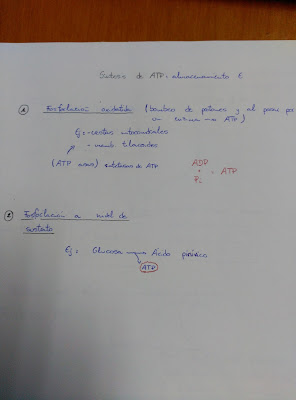 Síntesis de ATP = almacenamiento E
1 Fosforilación oxidativa (bombeo de protones y al pasar por
un enzima → ATP)
Ej: - crestas mitocondriales
- memb tilacoides
(ATP asas) síntesis de ATP
ADP
+ → ATP
Pi
2 Fosforilación a nivel de
sustrato
Ej: Glucosa → Ácido pirúvico
ATP